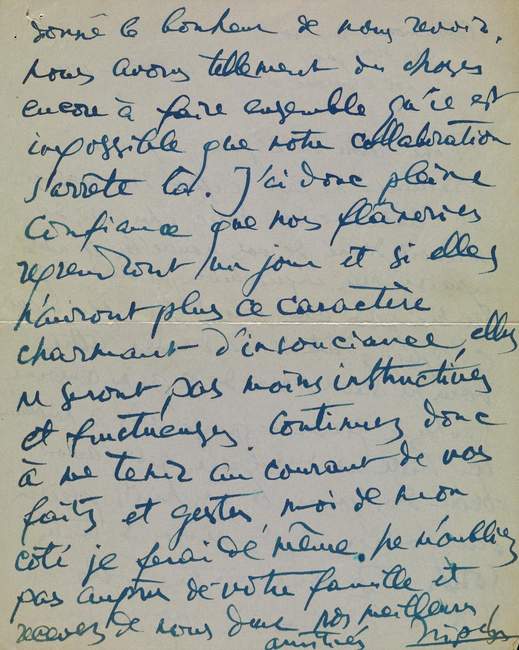 donné le bonheur de nous revoir,
nous avons tellement du choses
encore à faire ensemble qu'il est
impossible que notre collaboration
s'arrète là. J'ai donc pleine
confiance que nos flâneries
reprendront un jour et si elles
n'auront plus ce caractère
charmant d'insouciance, elles
ne seront pas moins instructives
et fructueuses. Continuez donc
à me tenir au courant de vos
faits et gestes moi de mon
coté je ferai de même. Ne m'oubliez
pas auprès de votre famille et
recevez de nous deux nos meilleurs
amitiés